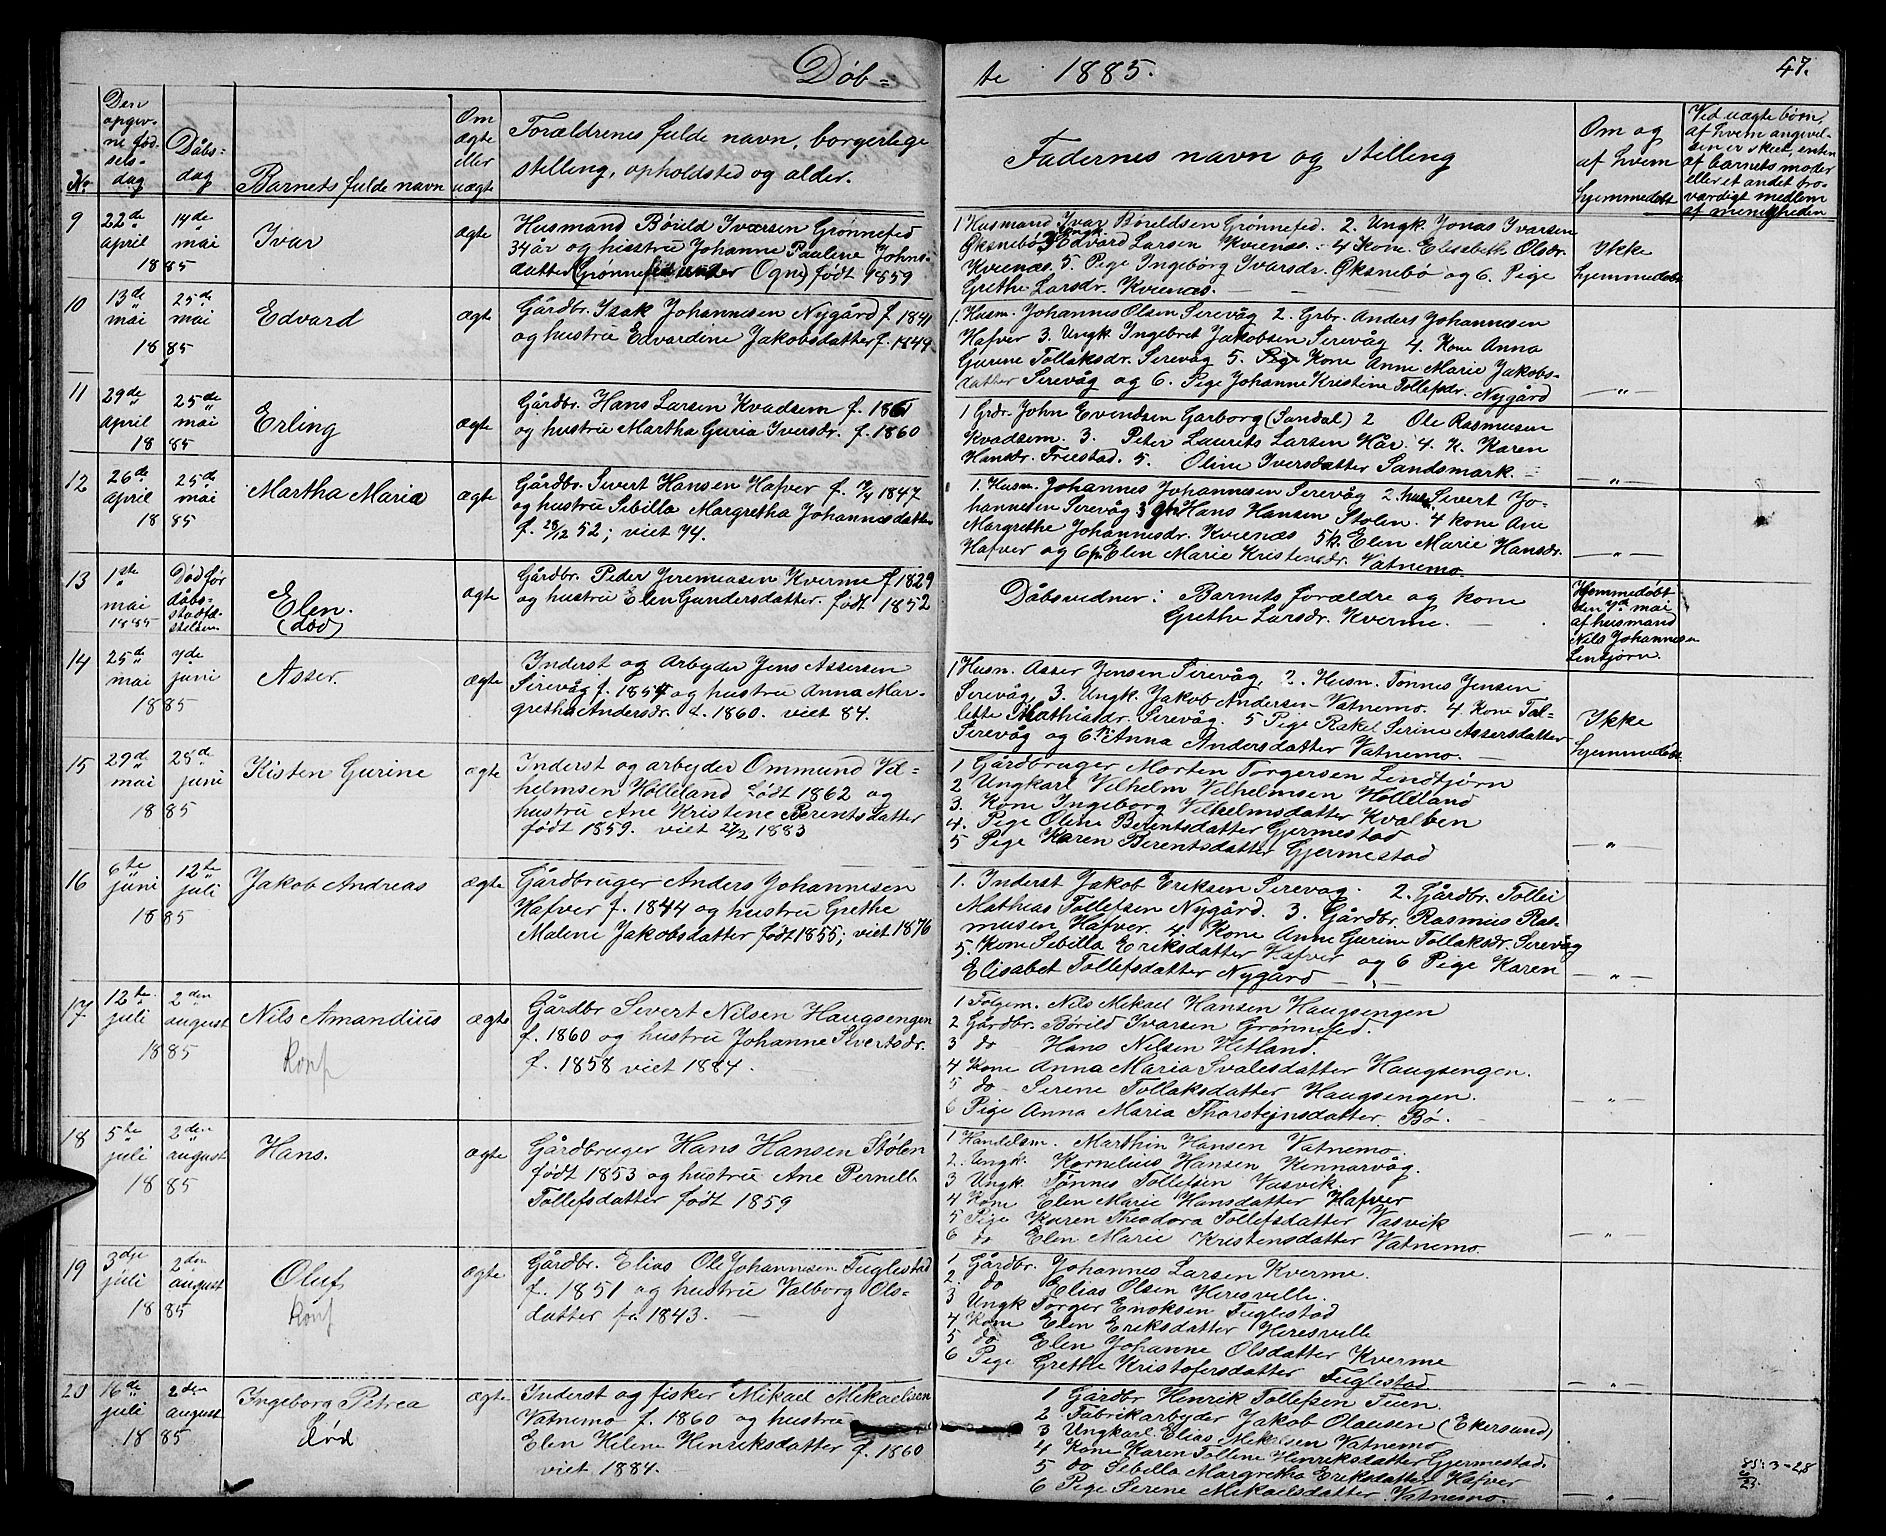 Døb=
te 1885.
47.
No
Den opgiv-
ne fød
sels-
dag
Dåbs-
dag
Barnets fulde navn
Om
ægte
eller
uægte
Forældrenes fulde navn, borgerlige
stilling, opholdsted og alder.
Fadernes navn og stilling
Om og
af hvem
hjemmedøbt
Ved uægte børn,
af hvem angivel-
sen er skeet, enten
af barnets moder
eller et andet tro-
værdigt medlem
af menigheden
9
22de april 1885
14de mai
Ivar
ægte
Husmand Børild Iversen Grønnefed
34 år og hustru Johanne Pauline Johns-
datter (Grønnefed under Ogne) født 1859
1 Husmand Ivar Børildsen Grønnefed. 2. Ungk. Jonas Ivarsen
Øksnebø 3 Ungk. Edvard Larsen Kvienæs. 4 Kone Elisabeth Olsdr.
Kvienæs. 5. Pige Ingebørg Ivarsdr. Øksnebø og 6. Pige
Grethe Larsdr. Kvienæs.
Ikke
hjemmedøbt
10
13de mai 1885
25de mai
Edvard
ægte
Gårdbr. Isak Johannesen Nygård f. 1841
og hustru Edvardine Jakobsdatter f. 1844.
1. Husm. Johannes Olsen Sirevåg 2. Grbr. Anders Johannesen
Hafver 3. Ungk Ingebret Jakobsen Sirevåg 4. Kone Anna
Gurine Tollaksdr. Sirevåg 5. Kone Anne Marie Jakobs-
datter Sirevåg og 6. Pige Johanne Kristine Tollefsdr. Nygård
— " —
11
29de april 1885
25de mai
Erling
ægte
Gårdbr. Hans Larsen Kvadsem f. 1861
og hustru Martha Guria Iversdr. f. 1860
1 Grdr. John Evendsen Garborg (Sandal) 2 Ole Rasmusen
Kvadsem. 3. Peter Laurits Larsen Hår. 4. K. Karen
Hansdr. Friestad. 5. Oline Iversdatter Sandsmark.
— " —
12
26de april 1885
25de mai
Martha Maria
ægte
Gårdbr. Sivert Hansen Hafver f. 1847
og hustru Sibilla Margretha Johannesdatter
f. 28/12 52; viet 74.
1. Husm. Johannes Johannesen Sirevåg 2. hus. Sivert Jo-
hannesen Sirevåg 3 gbr Hans Hansen Stølen. 4 kone Ane
Margrethe Johannesdr. Kvienæs 5 k. Elen Marie Hansdr.
Hafver og 6 p. Elen Marie Kristensdr. Vatnemo.
— " —
13
1ste mai 1885
Død før
dåbs-
stadfæ-
stelsen
Elen.
(død)
ægte
Gårdbr. Peder Jeremiasen Kverme f. 1829
og hustru Elen Gundersdatter. født 1852
Dåbsvidner: Barnets forældre og kone
Grethe Larsdr. Kverme.
Hjemmedøbt
den 7de mai
af husmand
Nils Johannesen
Lintjørn.
14
25de mai 1885
7de juni
Asser.
ægte
Inderst og arbejder Jens Assersen
Sirevåg f. 1854 og hustru Anna Mar-
gretha Andersdr. f. 1860. viet 84.
1 Husm. Asser Jensen Sirevåg, 2. Husm. Tønnes Jensen
Sirevåg, 3. Ungk. Jakob Andersen Vatnemo. 4. Kone Tal-
lette Mathiasdr. Sirevåg. 5 Pige Rakel Serine Assersdatter
Sirevåg og 6 P. Anna Andersdatter Vatnemo.
Ikke
hjemmedøbt
15
29de mai 1885
25de juni
Kisten Gurine
ægte
Inderst og arbejder Ommund Vil-
helmsen Hølleland født 1862 og
hustru Ane Kristene Berentsdatter
født 1859. viet 27/2 1883
1 Gårdbruger Morten Torgersen Lendtjørn
2 Ungkarl Vilhelm Vilhelmsen Hølleland
3. Kone Ingeborg Vilhelmsdatter Kvalben
4. Pige Oline Berentsdatter Gjermestad
5 Pige Karen Berentsdatter Gjermestad
— " —
16
6te juni 1885
12te juli
Jakob Andreas
ægte
Gårdbruger Anders Johannesen
Hafver f. 1844 og hustru Grethe
Malene Jakobsdatter født 1855; viet 1876
1. Inderst Jakob Eriksen Sirevåg. 2. Gårdbr. Tollei
Mathias Tollefsen Nygård. 3. Gårdbr. Rasmus Ras-
musen Hafver. 4. Kone Anne Gurine Tollaksdr. Sirevåg
5. Kone Sebilla Eriksdatter Hafver og 6 Pige Karen
Elisabet Tollefsdatter Nygård
— " —
17
12te juli 1885
2den august
Nils Amandius
Konf
ægte
Gårdbr Sivert Nilsen Haugsengen
f. 1860 og hustru Johanne Sivertsdr.
f. 1858 viet 1884.
1 Følgem. Nils Mikael Hansen Haugsengen
2 Gårdbr. Børild Ivarsen Grønnefed.
3 do Hans Nilsen Hetland.
4 Kone Anna Maria Svalesdatter Haugsengen.
5 do Serene Tollaksdatter Haugsengen.
6 Pige Anna Maria Thorstejnsdatter Bø.
— " —
18
5te juli 1885
2den august
Hans.
ægte
Gårdbruger Hans Hansen Stølen
født 1853 og hustru Ane Pernille
Tollefsdatter født 1859
1 Handelsm. Marthin Hansen Vatnemo.
2. Ungk. Kornelius Hansen Kinnarvåg.
3 Ungk Tønnes Tollefsen Vasvik.
4 Kone Elen Marie Hansdatter Hafver
5 Pige Karen Theodora Tollefsdatter Vasvik
6 do Elen Marie Kristensdatter Vatnemo
— " —
19
3dje juli 1885
2den august
Oluf
Konf
ægte
Gårdbr. Elias Ole Johannesen Fuglestad
f. 1851 og hustru Valborg Ols-
datter f. 1843.
1 Gårdbr. Johannes Larsen Kverme.
2. do Elias Olsen Hiresville.
3 Ungk Torger Enoksen Fuglestad
4 Kone Elen Eriksdatter Hiresville
5 do Elen Johanne Olsdatter Kverme
6 Pige Grethe Kristofersdatter Fuglestad
— " —
20
16de juli 1885
2den august
Ingeborg Petrea
død
ægte
Inderst og fisker Mikael Mikaelsen
Vatnemo f. 1860 og hustru
Elen Helene Henriksdatter f. 1860
viet 1884.
1 Gårdbr Henrik Tollefsen Tuen.
2 Fabrikarbejder Jakob Olausen (Ekersund)
3 Ungkarl Elias Mikelsen Vatnemo
4 Kone Karen Tolline Henriksdatter Gjermestad.
5 do Sebilla Margretha Eriksdatter Hafver
6 Pige Serene Mikaelsdatter Vatnemo.
— " —